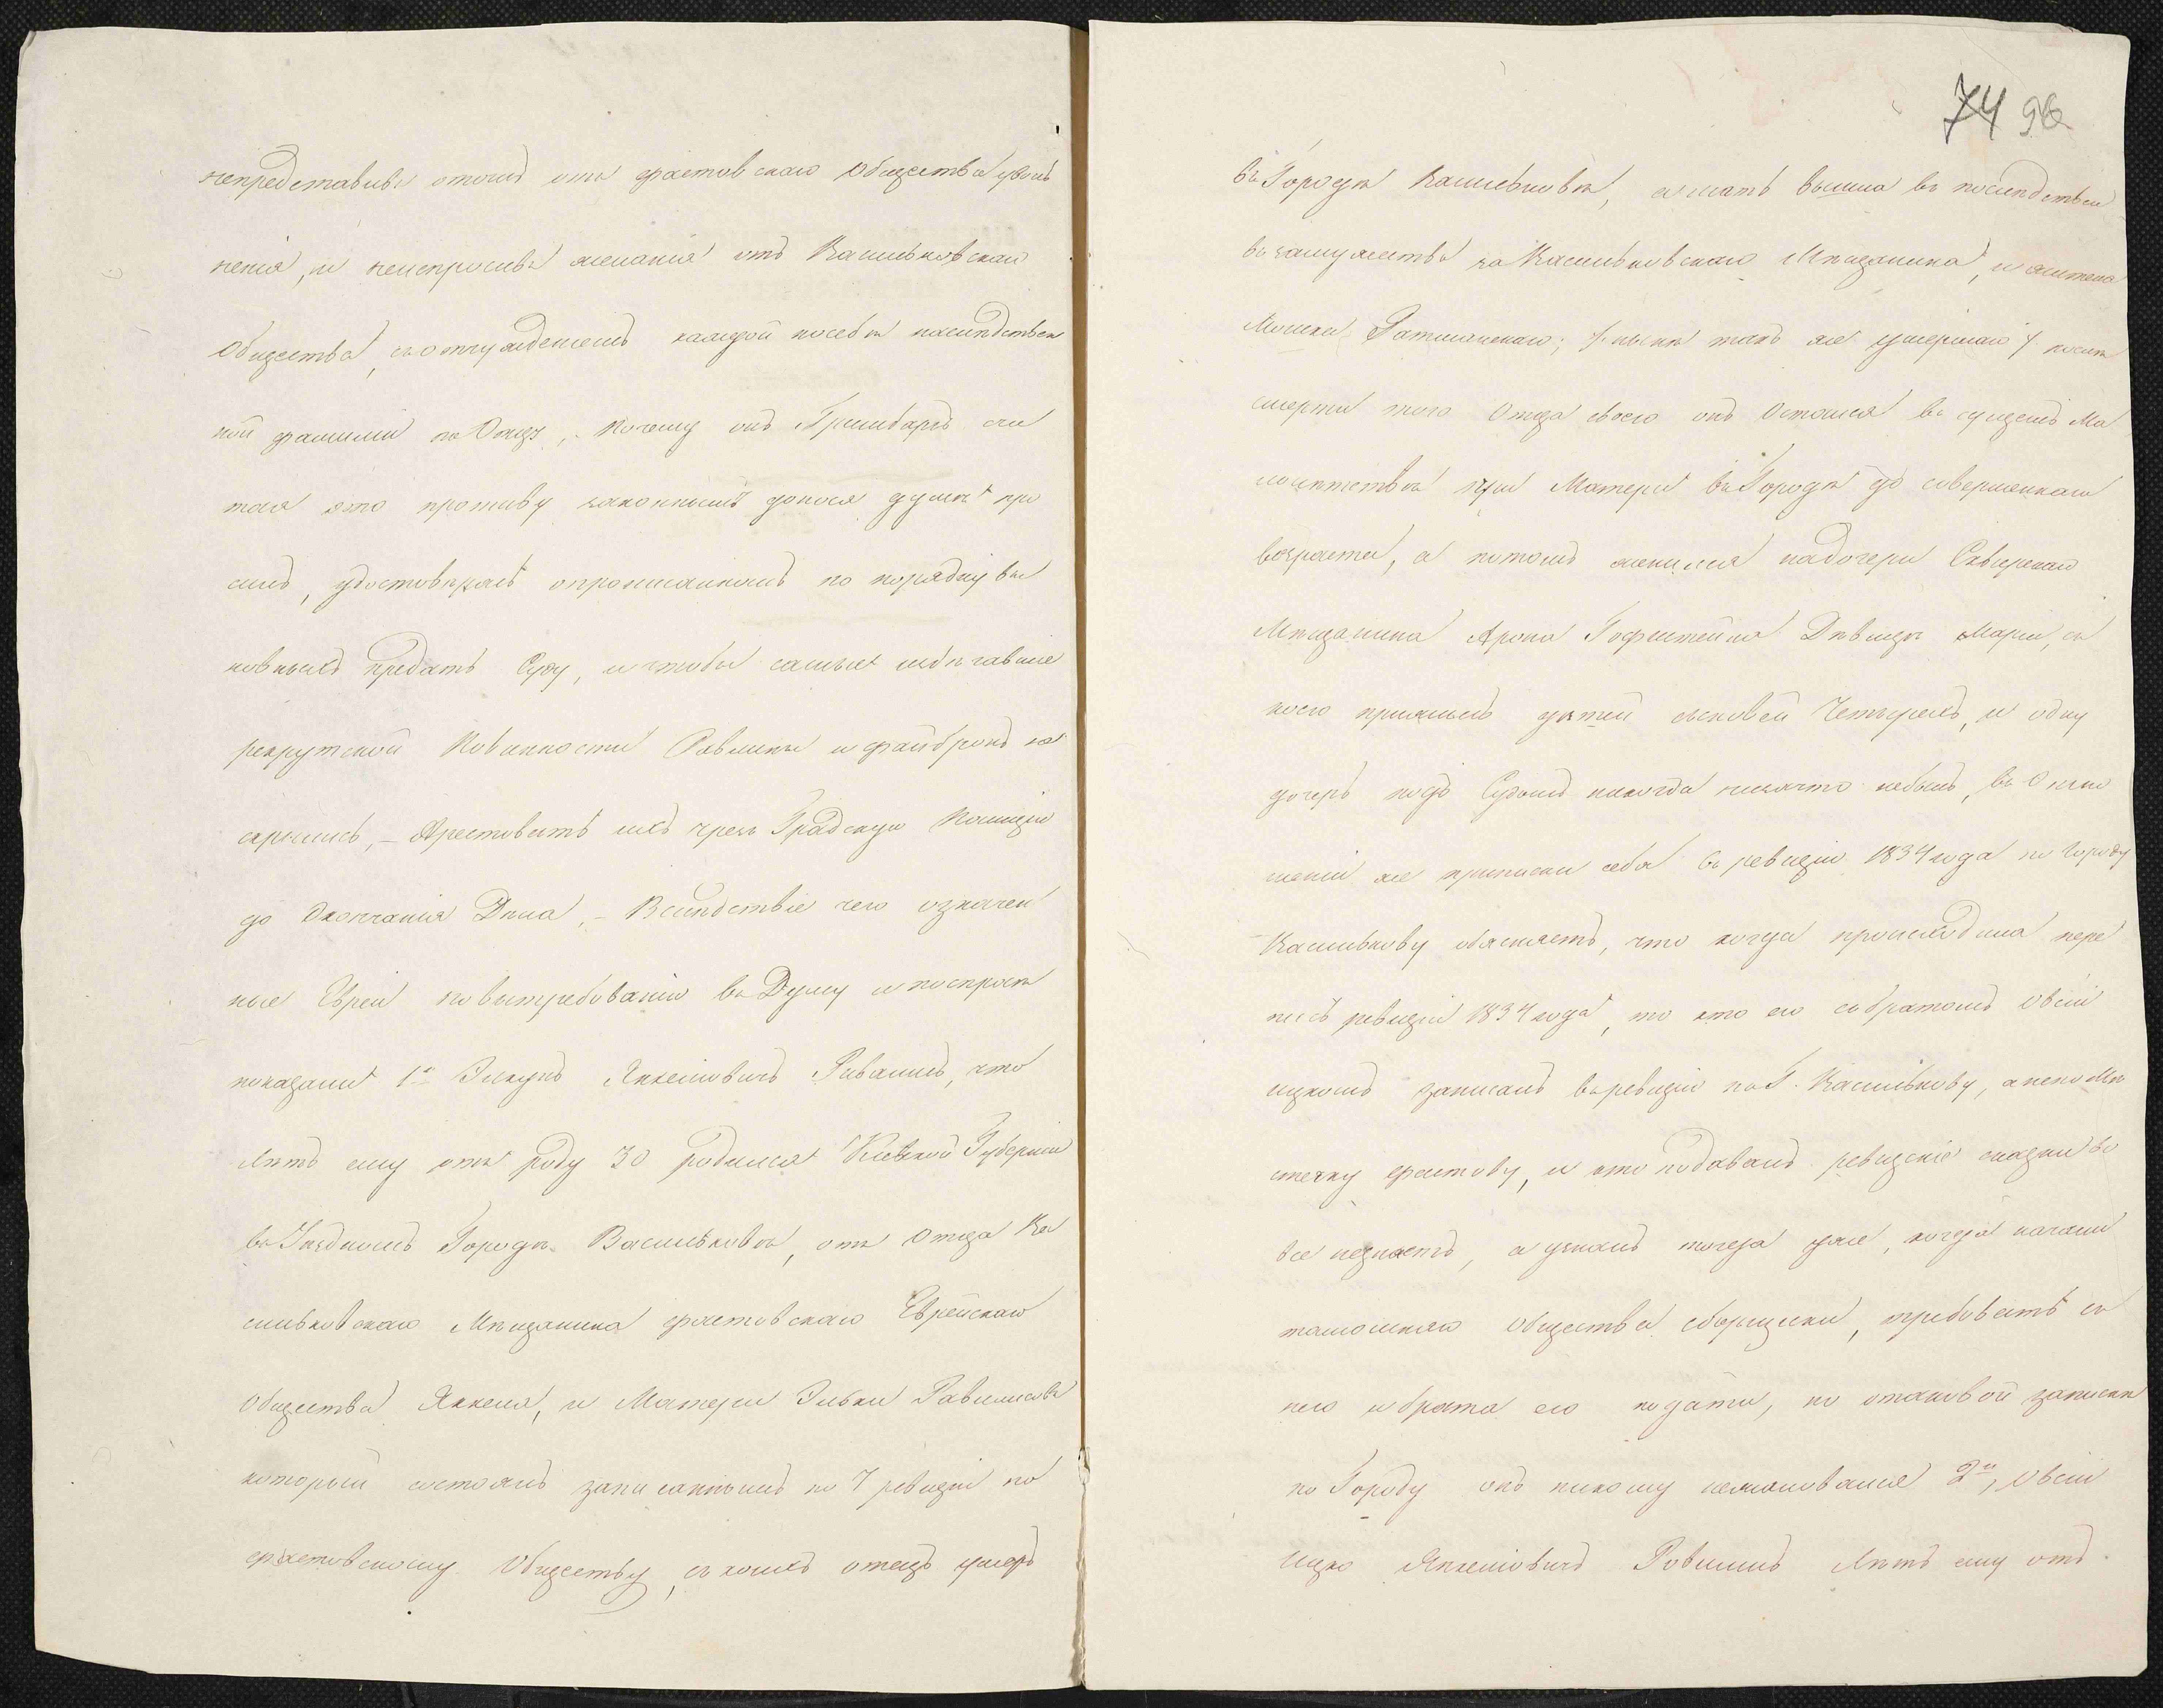 непредставивъ отомъ отъ фастовскаго Общества уволь
ненія, и неиспросивъ желанія отъ Васильковскаго
Общества, съ отчужденіемъ каждой посебѣ наслѣдствен
ной фамиліи по Отцу, почему онъ Гринбаргъ счи
тая это противу законнымъ донося думѣ про
силъ, удостовѣрясь опрописанномъ по порядку ви
новныхъ предать Суду, и чтобы самые избѣгавшіе
рекрутской Повинности Равлины и файбронъ не
скрылись, – Арестовать ихъ чрезъ Градскую Полицію
до Окончанія Дѣла, – Вслѣдствіе чего означен
ные Евреи по вытребованіи въ Думу и поспросѣ
показали 1й Элкунъ Янкеліовичъ Равлинъ, что
Лѣтъ ему отъ роду 30 родился Кіевской Губерніи
въ Уѣздномъ Городѣ Васильковѣ, отъ Отца Ва
сильковскаго Мѣщанина фастовскаго Еврейскаго
Общества Янкеля, и Матери Эльки Равлиновъ
который состоялъ записаннымъ по 7 ревизіи по
фастовскому Обществу, съ коихъ отецъ умеръ
74 96
въ Городѣ Васильковѣ, а мать вышла въ послѣдствіи
въ замужество за Васильковскаго Мѣщанина, и жителя
Мошка нынѣ такъ же умершаго / послѣ
смерти того Отца своего онъ Остался въ сущемъ Ма
лолѣтствѣ при Матери въ Городѣ до совершеннаго
возраста, а потомъ женился на дочери Сквирскаго
Мѣщанина Арона Гофштейна Дѣвицы Маріи, съ
коею прижилъ дѣтей сыновей Четырехъ, и одну
дочерь подъ Судомъ никогда низачто небылъ, въ Отно
шеніи же приписки себя въ ревизію 1834 года по Городу
Василькову объясняетъ, что когда происходила пере
пись ревизіи 1834 года, то кто его съ братомъ Овсій
ицкомъ записалъ въ ревизію по Г. Василькову, а непо Мѣ
стечку фастову, и кто подавалъ ревизскіе сказки во
все незнаетъ, а узналъ тогда уже, когда начали
тамошняго Общества сборщики, требовать съ
него и брата его подати, но отаковой запискѣ
по Городу онъ никому нежаловался 2й, Овсій
Ицко Янкеліовичъ Равлинъ Лѣтъ ему отъ